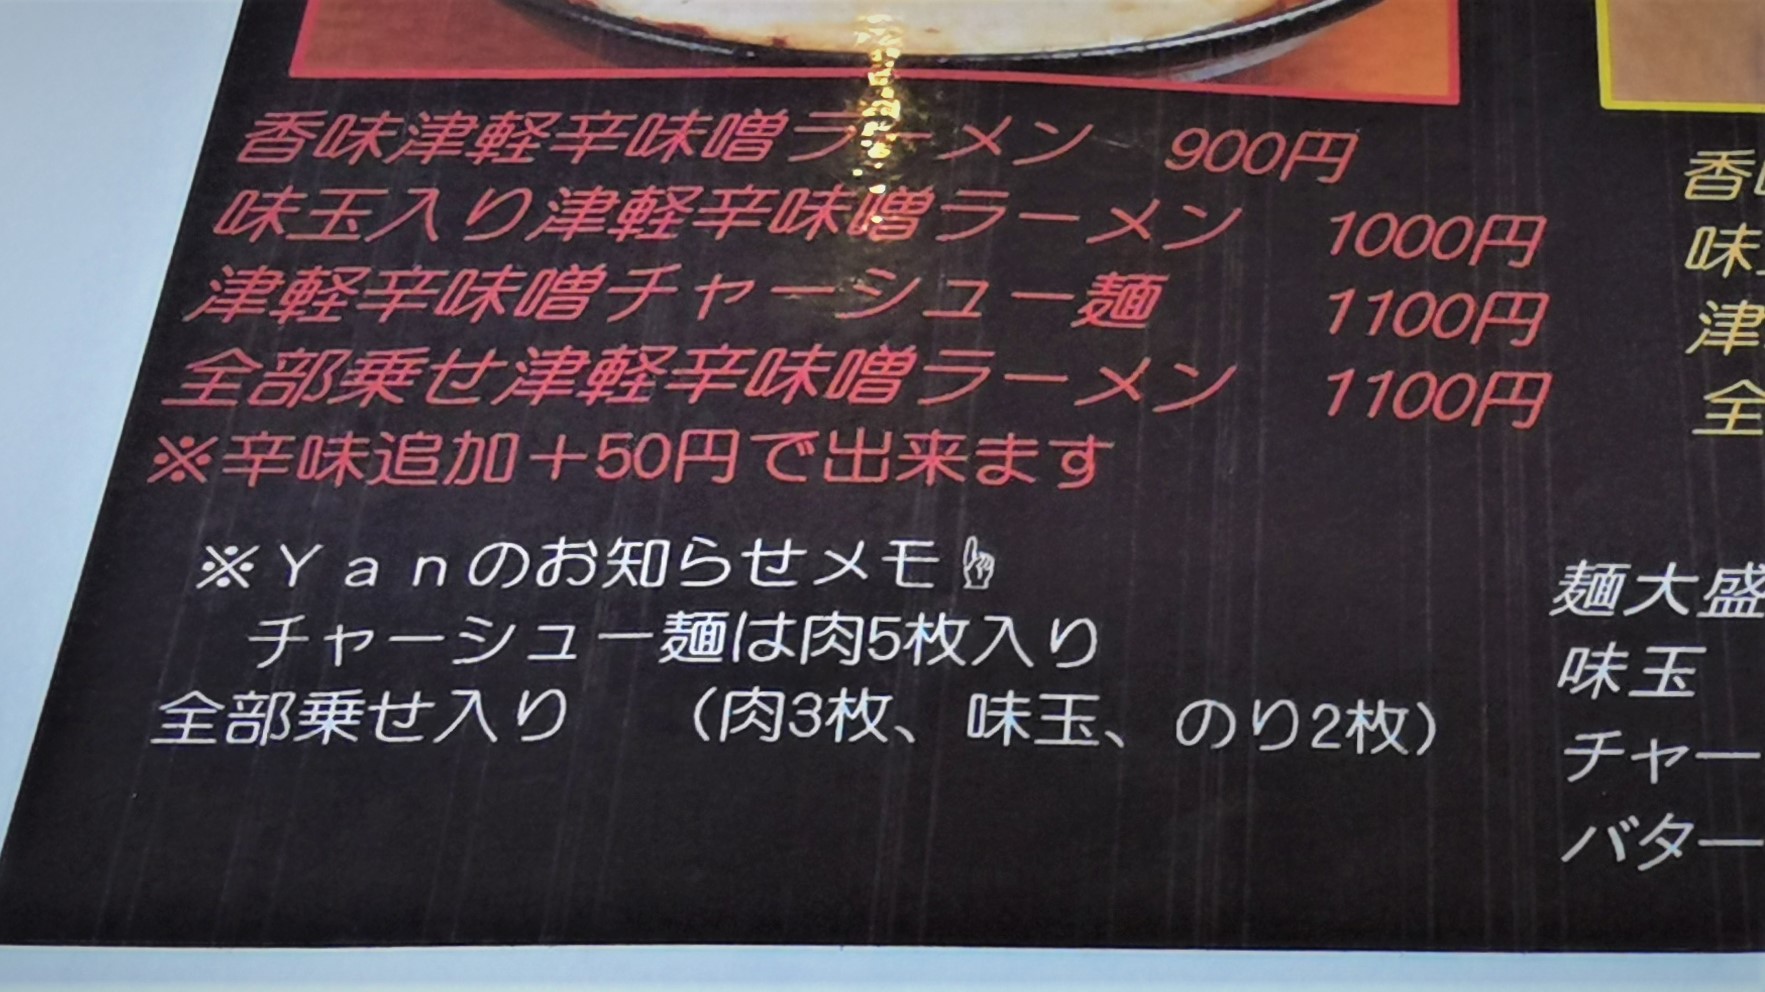 香味津軽辛味噌ラーメン 900円
味玉入り津軽辛味噌ラーメン 1000円
津軽辛味噌チャーシュー麺 1100円
全部乗せ津軽辛味噌ラーメン 1100円
※辛味追加+50円で出来ます
※Yanのお知らせメモ☝
チャーシュー麺は肉5枚入り
全部乗せ入り (肉3枚、味玉、のり2枚)
香
味
津
全
麺大盛
味玉
チャー
バター